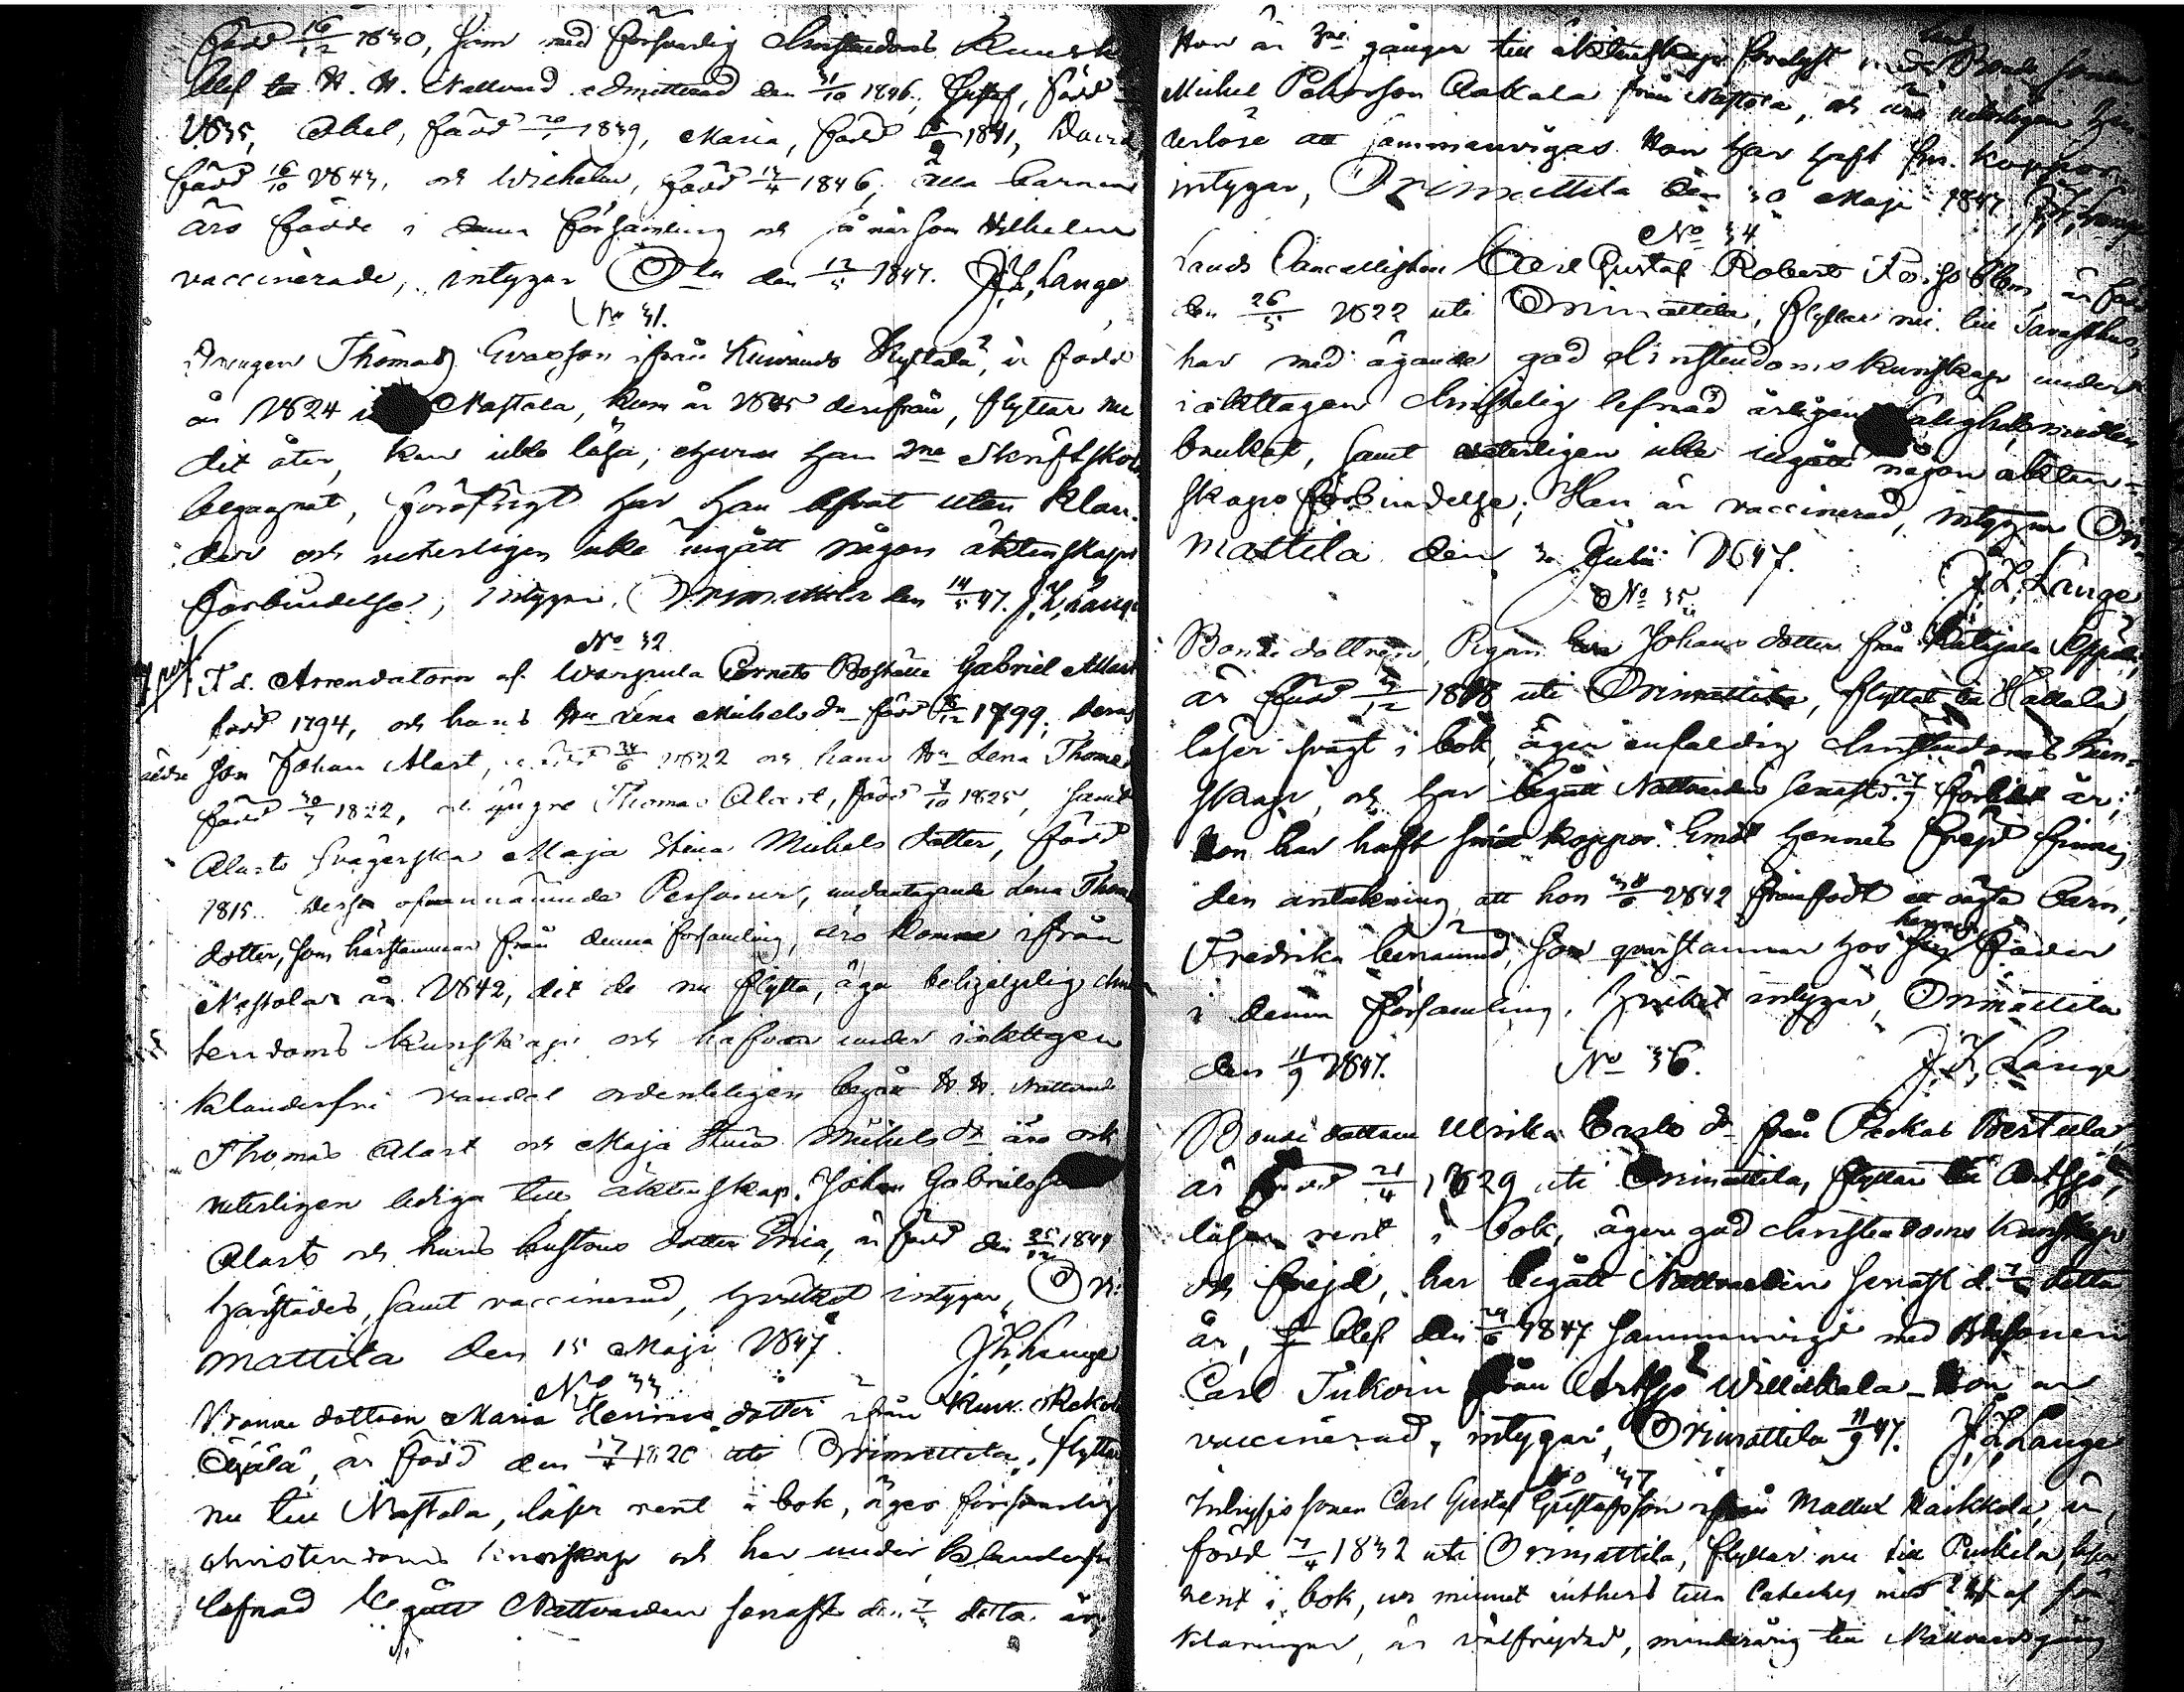 född 16/12 1830, som med försvarlig Christendoms Kunsk
blef till H. H. Nattvard admitterad den 31/10 1846, Gustaf, född
1835, Abel, född 20/1 1839, Maria, född 1841, David
född 16/10 1843, och Wilhelm, född 13/4 1846, alla barnen
äro födde i denna församling och så när som Wilhelm
vaccinerade, intygar den 12/5 1847. J. H. Lange
No 31.
Drengen Thomas Evasson ifrån Kuivando Skyttälä, är född
år 1824 i Nastola, kom år 1845 derifrån, flyttar nu
dit åter, kan icke läsa, ehuru han 2ne Skriftskol
begagnat, i öfrigt har han lefvat utan klan-
der och veterligen icke ingått någon äktenskaps
förbindelse; intygar, Orimattila den 14/5 47. J. H. Lange
No 32
F. d. Arrendatorn af Boställe Gabriel Alast
född 1794, och hans Hu Lena Michelsdr född 1799, deras
äldre Son Johan Alast, född 24/6 1822 och hans Hu Lena Thomas
född 1822, och yngre Thomas Alast, född 7/10 1825, samt
Alasts Svägerska Maja Stina Michels dotter, född
1815. Dessa ofvannämnde Personer, undantagande Lena Thomas
dotter, som härstammar från denna församling, äro komne ifrån
Nastola år 1842, dit de nu flytta, äga behjelplig chris
tendoms kunskap och hafva under iakttagen
klanderfri vandel ordentligen begått H. H. Nattvard
Thomas Alast och Maja Stina Michelsdr äro och
veterligen lediga till äktenskap. Johan Gabrielsson
Alasts och hans hustrus dotter Erica, är född den 25/12 1844
härstädes, samt vaccinerad, hvilket intygar, Ori-
mattila den 15 Maji 1847. J. H. Lange
No 33
dottren Maria Henrics dotter ifrån
är född den 17/4 1820 uti Orimattila, flyttar
nu till Nastola, läser rent i bok, äger försvarlig
christendoms kunskap och har under klanderfri
lefnad begått Nattvarden senast den detta år,
Hon är 3ne gånger till äktenskap förelyst med Bonde sonen
Michel Pehrsson från Nastola, och äro veterligen hin-
derlöse att sammanvigas. Hon har haft sm. koppor
intygar, Orimattila den 30 Maji 1847. J. H. Lange
No 34.
Lands Cancellisten Carl Gustaf Robert är född
den 26/5 1822 uti Orimattila, flyttar nu till Tavasthus,
har med ägande god christendoms kunskap under
iakttagen christelig lefnad årligen Salighetsmedlen
brukat, samt veterligen icke ingått någon äkten-
skaps förbindelse; Han är vaccinerad, intygar Ori-
mattila den 3 Julii 1847. J. H. Lange
No 35.
Bondedottren Johans dotter från Seppälä,
är född 1818 uti Orimattila, flyttar till Hollola,
läser svagt i bok, äger enfaldig christendoms kun-
skap, och har begått Nattvarden senast d. förledet år;
Hon har haft små koppor. Emot hennes frejd finnes
den anteckning att hon 1842 framfödt ett oägta barn,
Fredrika benämnd, som qvarstannar hos hennes fader
i denna församling, hvilket intygar, Orimattila
den 11/9 1847. J. H. Lange
No 36.
Bondedottren Ulrika Carls dr från Peckas Bertula,
är född 21/4 1829 uti Orimattila, flyttar till Artsjö,
läser rent i bok, äger god christendoms kunskap
och frejd, har begått Nattvarden senast d. detta
år, blef den 24/6 1847 sammanvigd med
Carl Tukoin från Artsjö Willikkala. Hon är
vaccinerad, intygar, Orimattila 11/9 47. J. H. Lange
No 37
Inhyses sonen Carl Gustaf Gustafsson ifrån Kaikkola, är
född 7/4 1832 uti Orimattila, flyttar nu till läser
rent i bok, ur minnet Luthers lilla Cateches med af för-
klaringar, är välfrejdad, minderårig till Nattvardsgång